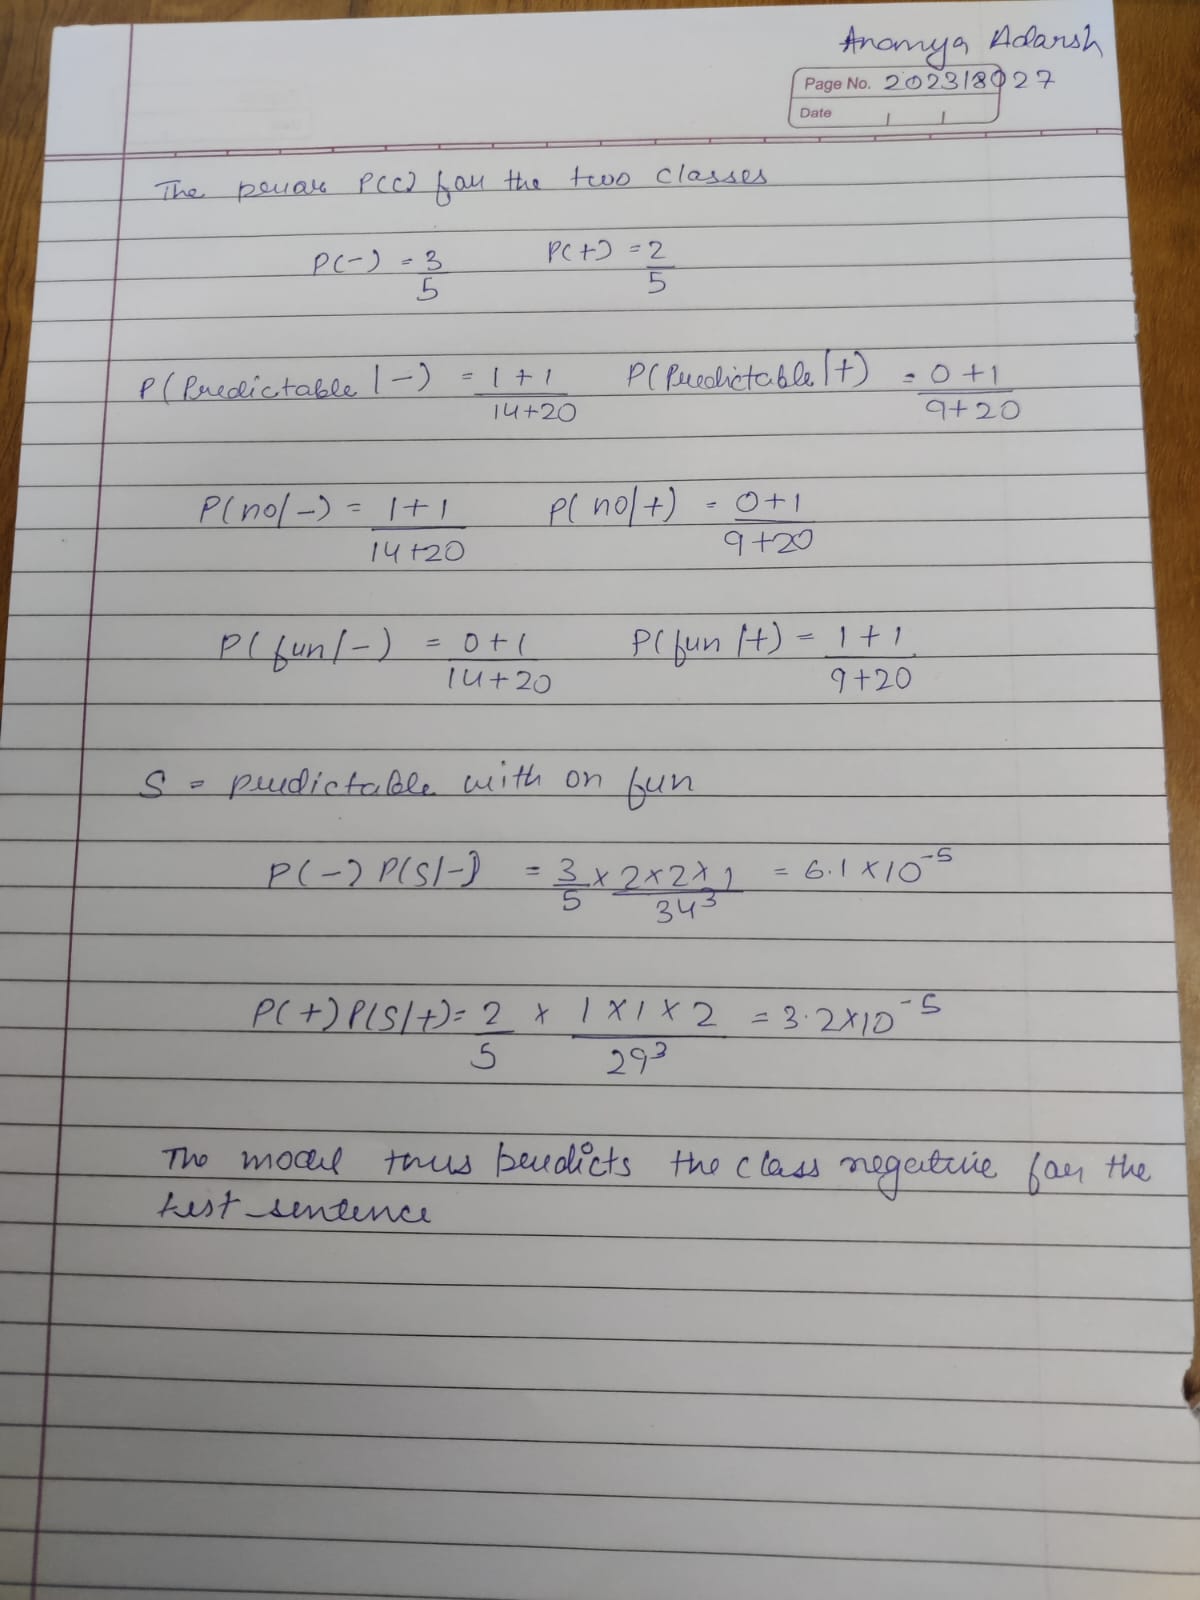 Anamya Adarsh
Page No. 202318027
Date
The prior P(C) for the two classes
P(-) = 3/5 P(+) = 2/5
P(Predictable|-) = 1+1/14+20 P(Predictable|+) = 0+1/9+20
P(no|-) = 1+1/14+20 P(no|+) = 0+1/9+20
P(fun|-) = 0+1/14+20 P(fun|+) = 1+1/9+20
S = predictable with on fun
P(-) P(S|-) = 3/5 × 2×2×1/34³ = 6.1×10⁻⁵
P(+)P(S|+) = 2/5 × 1×1×2/29³ = 3.2×10⁻⁵
The model thus predicts the class negative for the
test sentence